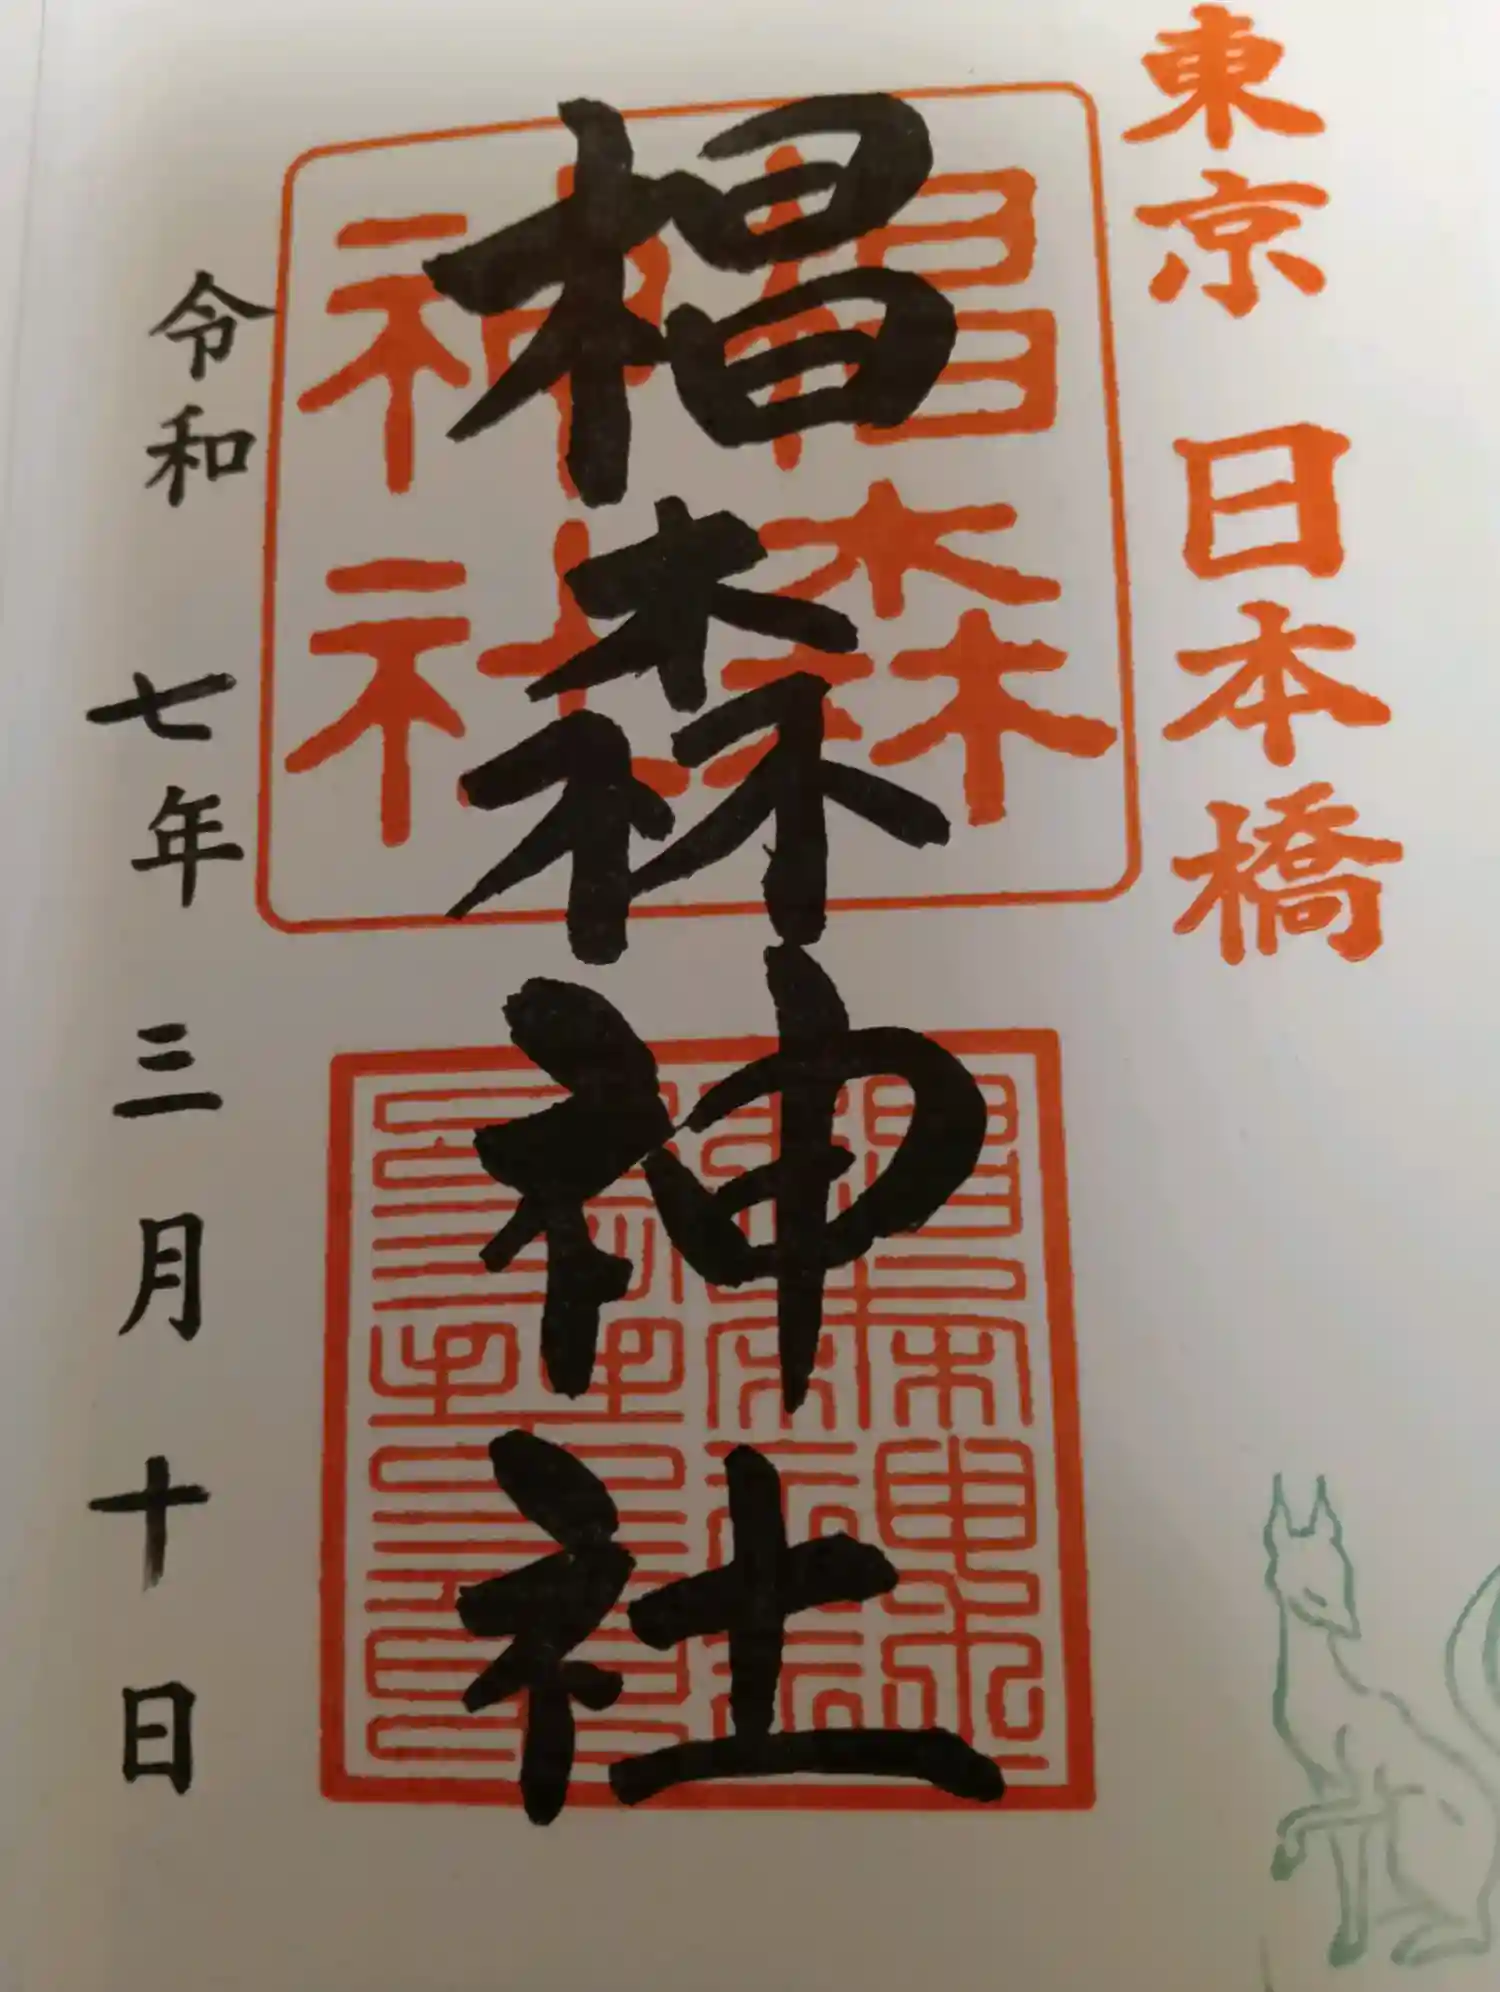 東京 日本橋
椙森神社
椙森
神社
令和 七年 三月 十日